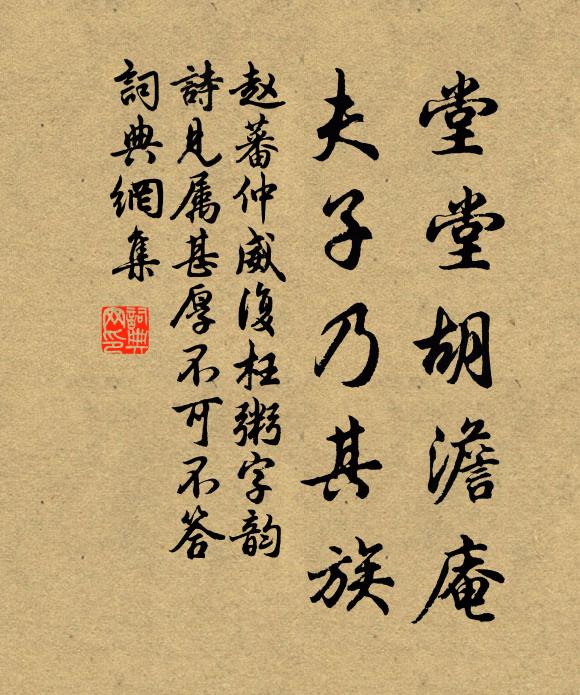 堂堂胡澹庵
夫子乃其族
赵蕃仲威復枉粥字韵
詩見属甚厚不可不答
詞典網集
詞典网印